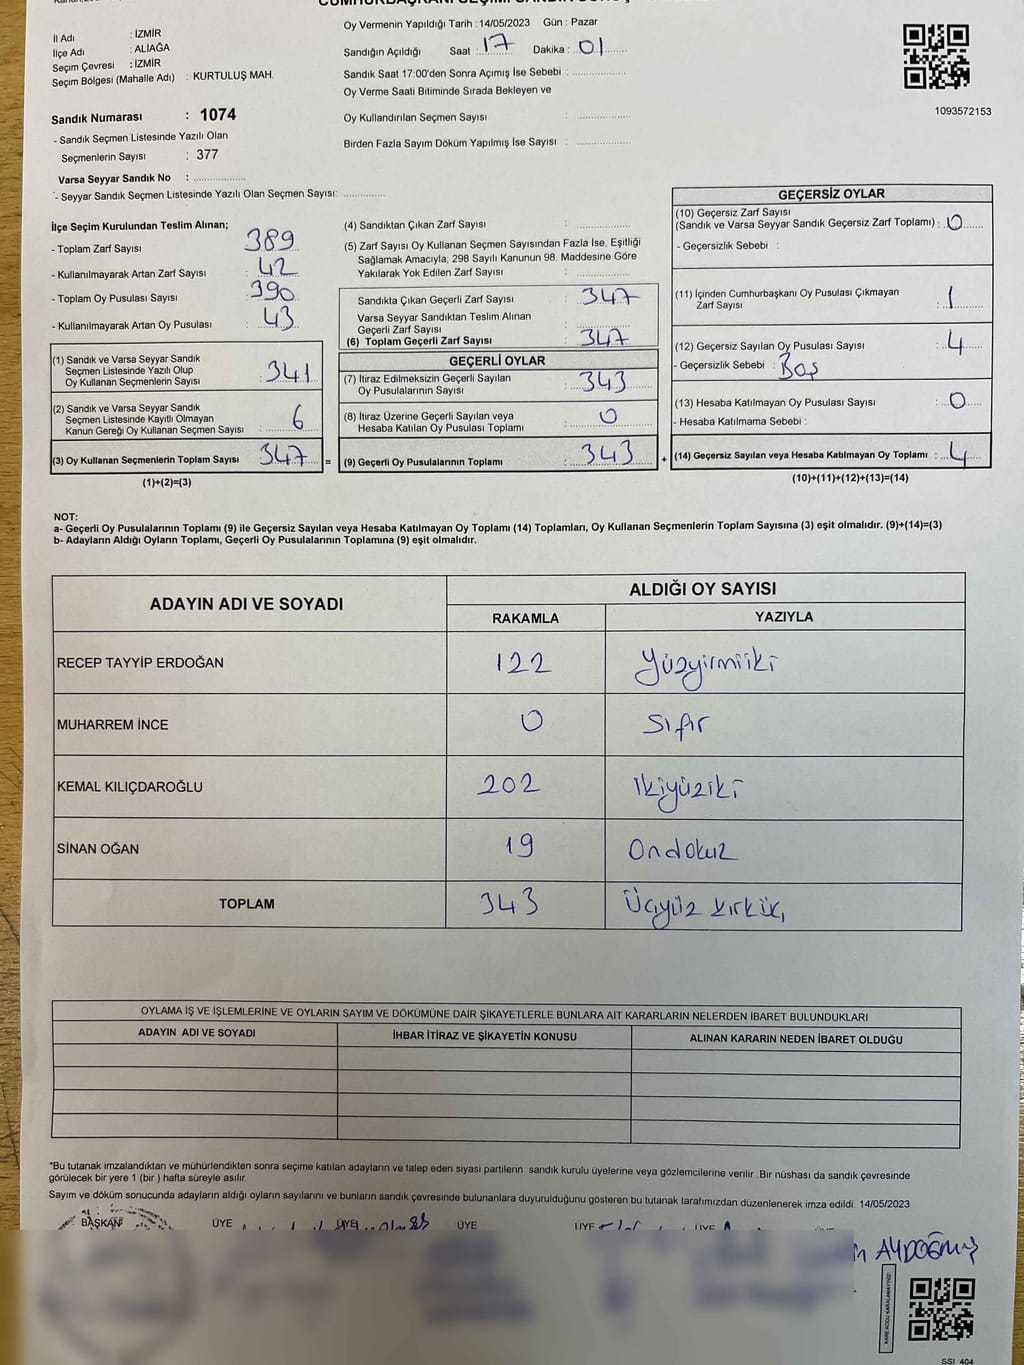 Oy Vermenin Yapıldığı Tarih : 14/05/2023 Gün : Pazar
İl Adı : İZMİR
İlçe Adı : ALİAĞA
Seçim Çevresi : İZMİR
Seçim Bölgesi (Mahalle Adı) : KURTULUŞ MAH.
Sandığın Açıldığı Saat : 17 Dakika : 01
Sandık Saat 17:00'den Sonra Açımış İse Sebebi :
Oy Verme Saati Bitiminde Sırada Bekleyen ve
Oy Kullandırılan Seçmen Sayısı :
Birden Fazla Sayım Döküm Yapılmış İse Sayısı :
1093572153
Sandık Numarası : 1074
- Sandık Seçmen Listesinde Yazılı Olan
Seçmenlerin Sayısı : 377
Varsa Seyyar Sandık No :
- Seyyar Sandık Seçmen Listesinde Yazılı Olan Seçmen Sayısı:
İlçe Seçim Kurulundan Teslim Alınan;
- Toplam Zarf Sayısı : 389
- Kullanılmayarak Artan Zarf Sayısı : 42
- Toplam Oy Pusulası Sayısı : 390
- Kullanılmayarak Artan Oy Pusulası : 43
(1) Sandık ve Varsa Seyyar Sandık
Seçmen Listesinde Yazılı Olup
Oy Kullanan Seçmenlerin Sayısı : 341
(2) Sandık ve Varsa Seyyar Sandık
Seçmen Listesinde Kayıtlı Olmayan
Kanun Gereği Oy Kullanan Seçmen Sayısı : 6
(3) Oy Kullanan Seçmenlerin Toplam Sayısı : 347 =
(1)+(2)=(3)
(4) Sandıktan Çıkan Zarf Sayısı :
(5) Zarf Sayısı Oy Kullanan Seçmen Sayısından Fazla İse, Eşitliği
Sağlamak Amacıyla, 298 Sayılı Kanunun 98. Maddesine Göre
Yakılarak Yok Edilen Zarf Sayısı :
Sandıkta Çıkan Geçerli Zarf Sayısı : 347
Varsa Seyyar Sandıktan Teslim Alınan
Geçerli Zarf Sayısı :
(6) Toplam Geçerli Zarf Sayısı : 347
GEÇERLİ OYLAR
(7) İtiraz Edilmeksizin Geçerli Sayılan
Oy Pusulalarının Sayısı : 343
(8) İtiraz Üzerine Geçerli Sayılan veya
Hesaba Katılan Oy Pusulası Toplamı : 0
(9) Geçerli Oy Pusulalarının Toplamı : 343 +
GEÇERSİZ OYLAR
(10) Geçersiz Zarf Sayısı
(Sandık ve Varsa Seyyar Sandık Geçersiz Zarf Toplamı) : 0
- Geçersizlik Sebebi :
(11) İçinden Cumhurbaşkanı Oy Pusulası Çıkmayan
Zarf Sayısı : 1
(12) Geçersiz Sayılan Oy Pusulası Sayısı : 4
- Geçersizlik Sebebi : Boş
(13) Hesaba Katılmayan Oy Pusulası Sayısı : 0
- Hesaba Katılmama Sebebi :
(14) Geçersiz Sayılan veya Hesaba Katılmayan Oy Toplamı : 4
(10)+(11)+(12)+(13)=(14)
NOT:
a- Geçerli Oy Pusulalarının Toplamı (9) ile Geçersiz Sayılan veya Hesaba Katılmayan Oy Toplamı (14) Toplamları, Oy Kullanan Seçmenlerin Toplam Sayısına (3) eşit olmalıdır. (9)+(14)=(3)
b- Adayların Aldığı Oyların Toplamı, Geçerli Oy Pusulalarının Toplamına (9) eşit olmalıdır.
ADAYIN ADI VE SOYADI ALDIĞI OY SAYISI
RAKAMLA YAZIYLA
RECEP TAYYİP ERDOĞAN 122 Yüzyirmiiki
MUHARREM İNCE 0 Sıfır
KEMAL KILIÇDAROĞLU 202 İkiyüziki
SİNAN OĞAN 19 Ondokuz
TOPLAM 343 Üçyüz kırküç
OYLAMA İŞ VE İŞLEMLERİNE VE OYLARIN SAYIM VE DÖKÜMÜNE DAİR ŞİKAYETLERLE BUNLARA AİT KARARLARIN NELERDEN İBARET BULUNDUKLARI
ADAYIN ADI VE SOYADI İHBAR İTİRAZ VE ŞİKAYETİN KONUSU ALINAN KARARIN NEDEN İBARET OLDUĞU
*Bu tutanak imzalandıktan ve mühürlendikten sonra seçime katılan adayların ve talep eden siyasi partilerin sandık kurulu üyelerine veya gözlemcilerine verilir. Bir nüshası da sandık çevresinde
görülecek bir yere 1 (bir ) hafta süreyle asılır.
Sayım ve döküm sonucunda adayların aldığı oyların sayılarını ve bunların sandık çevresinde bulunanlara duyurulduğunu gösteren bu tutanak tarafımızdan düzenlenerek imza edildi. 14/05/2023
BAŞKAN ÜYE ÜYE ÜYE ÜYE ÜYE
AYDOĞMUŞ
KARE KODU KARALAMAYINIZ!
SSI 404